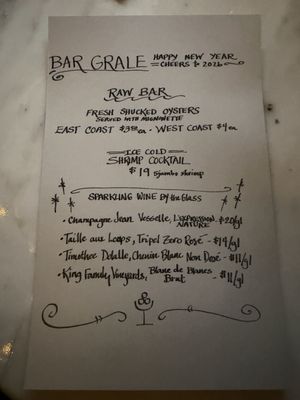 BAR GRALE HAPPY NEW YEAR
CHEERS to 2026
RAW BAR
FRESH SHUCKED OYSTERS
SERVED WITH MIGNONETTE
EAST COAST $3.50 ea. · WEST COAST $4 ea
ICE COLD
SHRIMP COCKTAIL
$19 5 jumbo shrimp
SPARKLING WINE By the Glass
• Champagne Jean Vesselle, L'EXPRESSION NATURE $20/gl
• Taille aux Loups, Tripel Zero Rosé - $14/gl
• Timothee Delalle, Chenin Blanc Non Dosé - $11/gl
• King Family Vineyards, Blanc de Blancs Brut - $11/gl